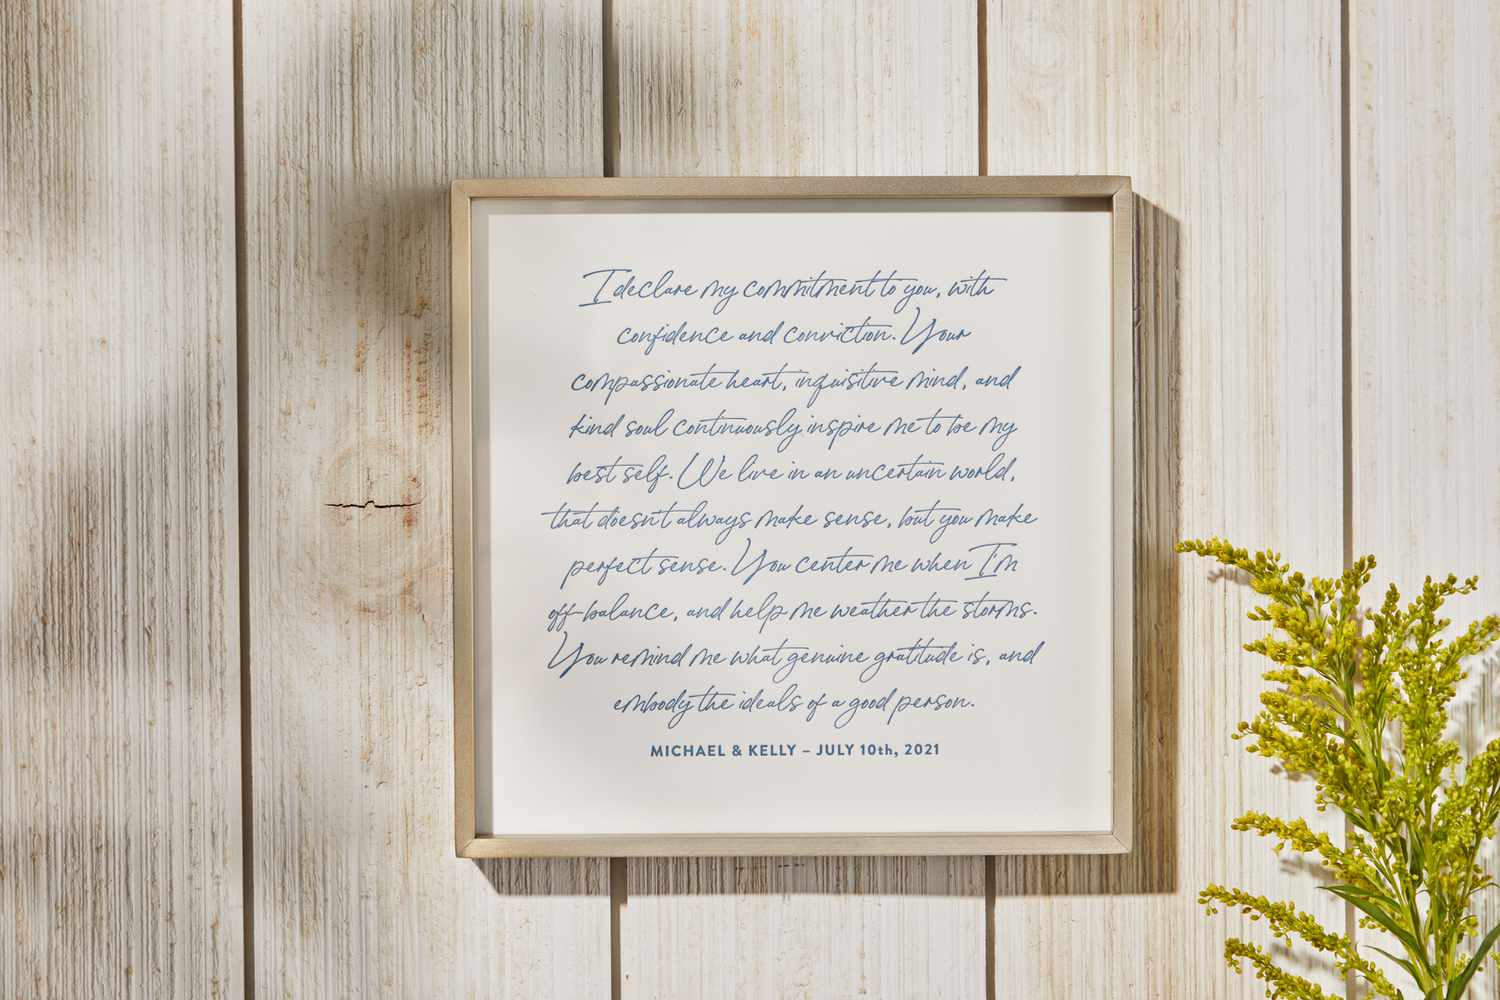 I declare my commitment to you, with
confidence and conviction. Your
compassionate heart, inquisitive mind, and
kind soul continuously inspire me to be my
best self. We live in an uncertain world,
that doesn't always make sense, but you make
perfect sense. You center me when I'm
off-balance, and help me weather the storms.
You remind me what genuine gratitude is, and
embody the ideals of a good person.
MICHAEL & KELLY – JULY 10th, 2021